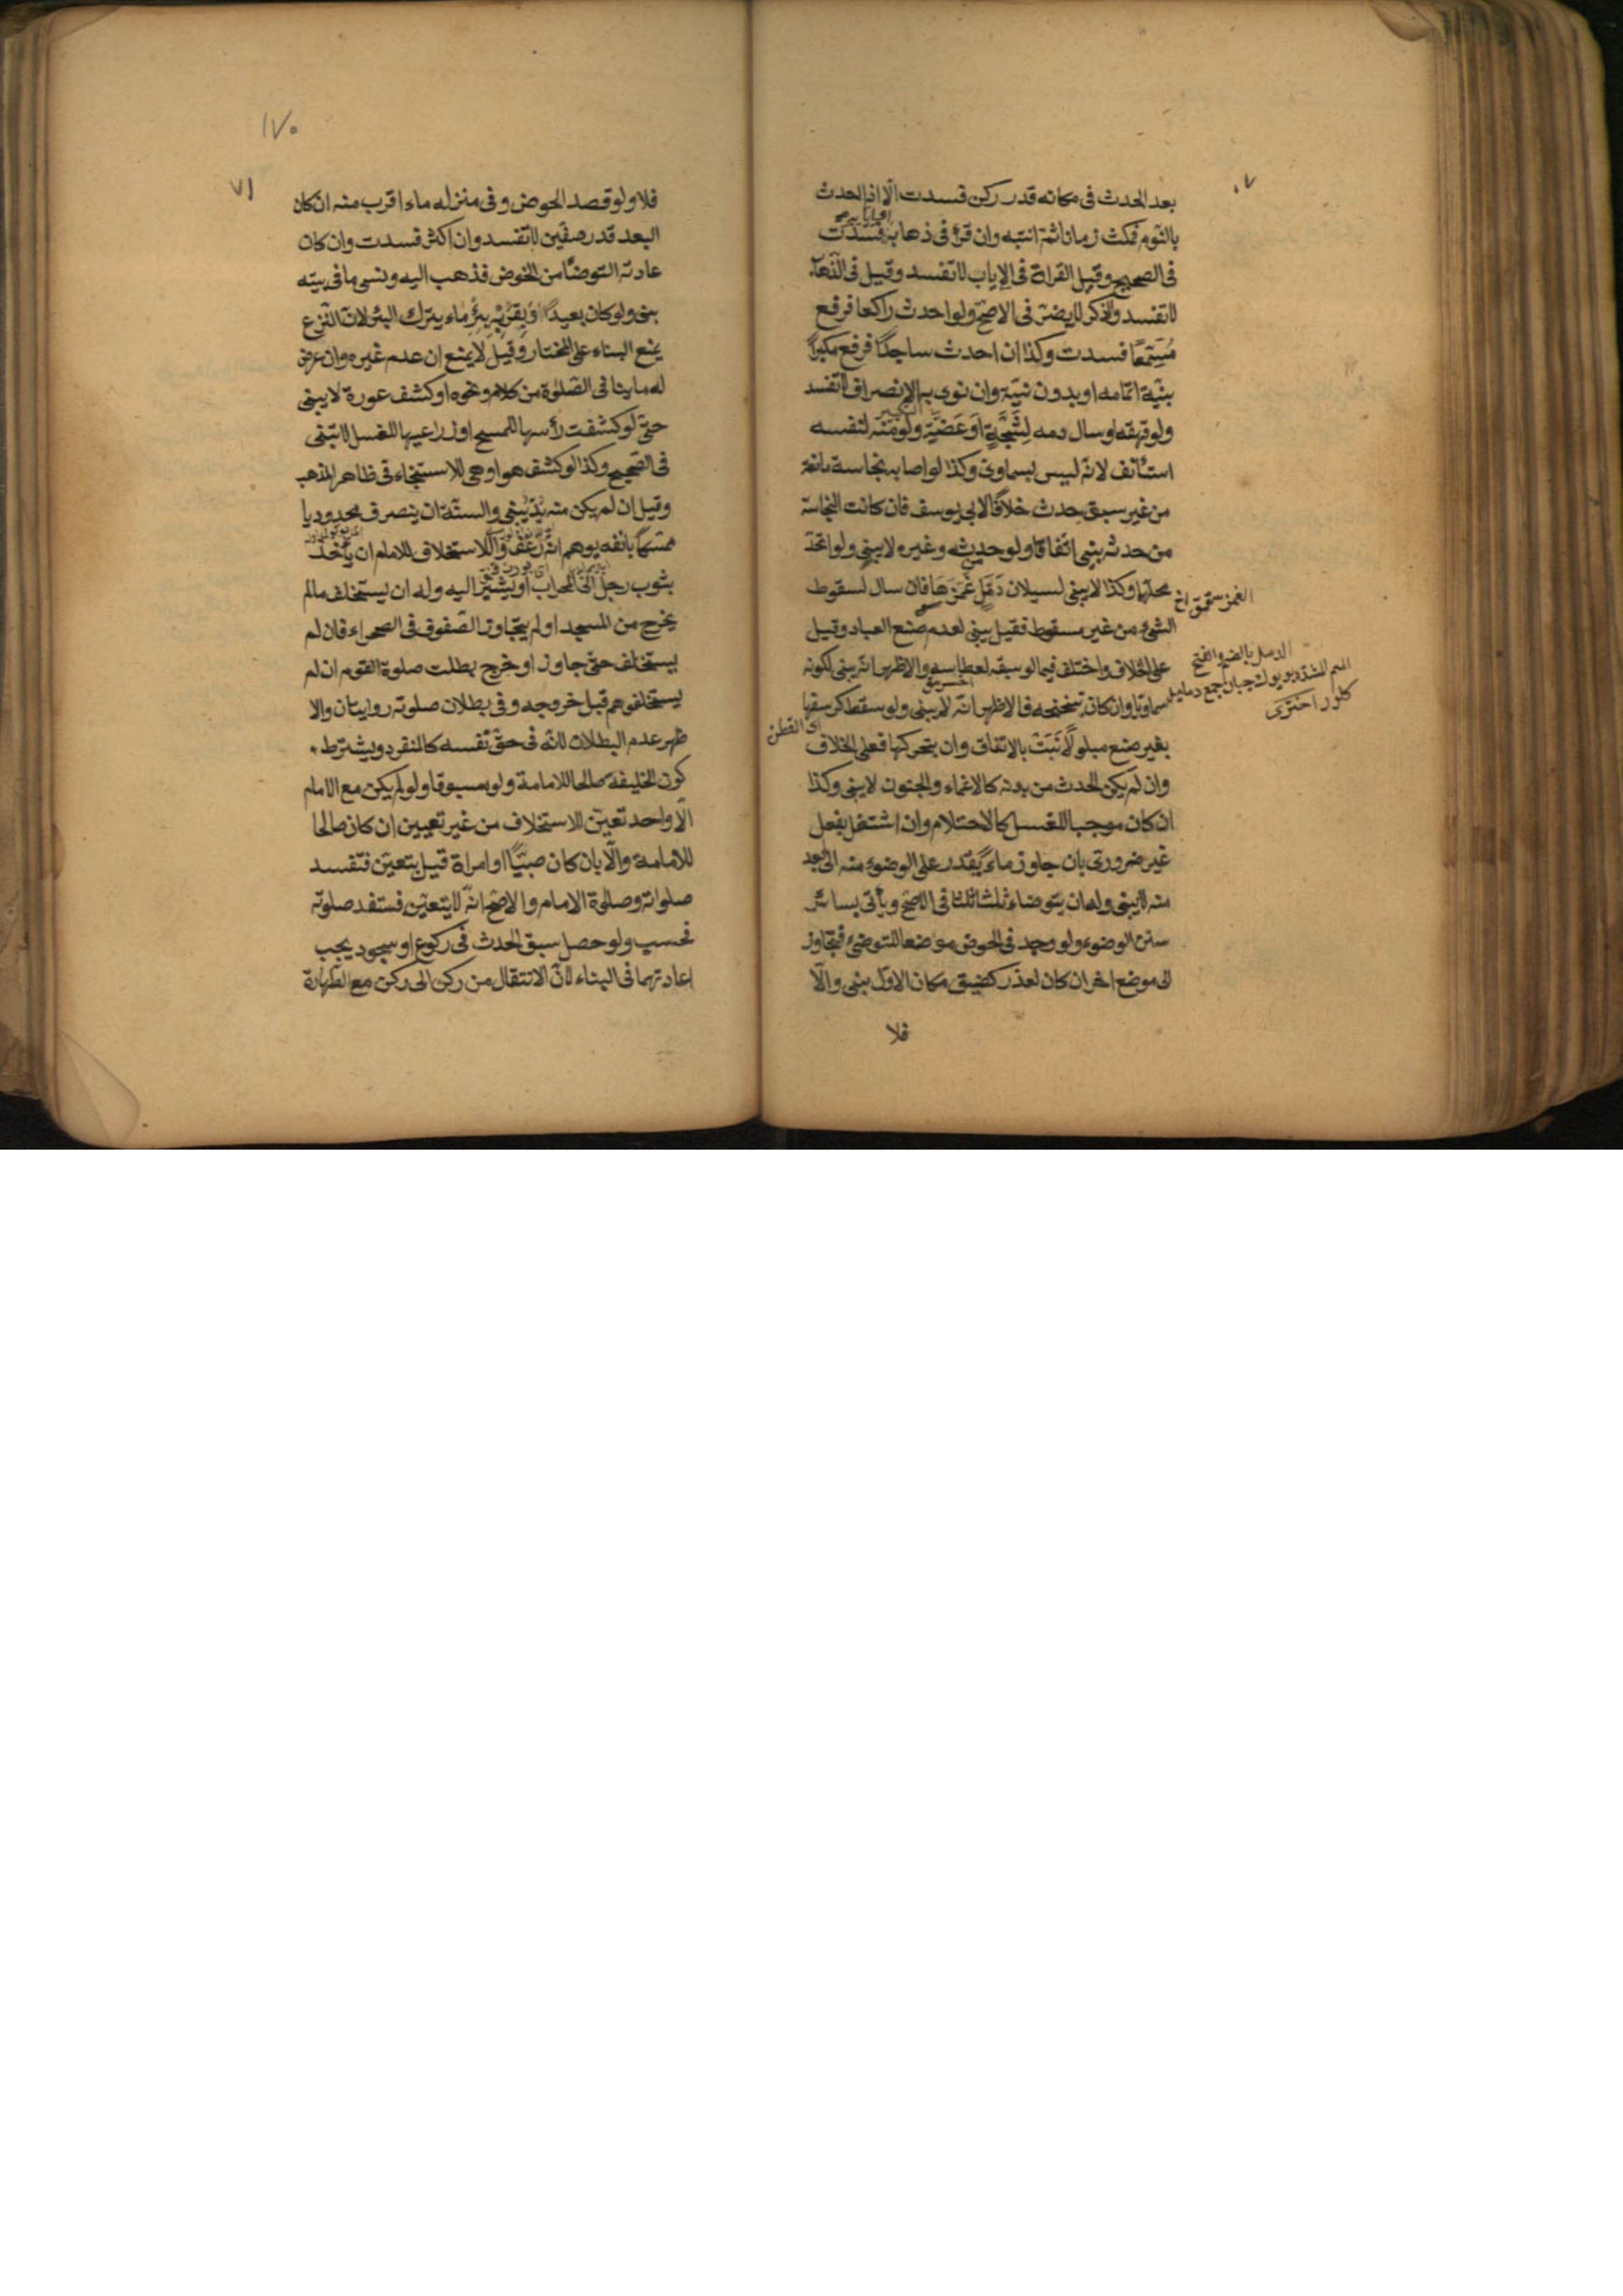 ٧٠
بعد الحدث فى مكانه قدر ركن فسدت الّا اذا الحدث
بالنّوم فمكث زمانا ثمّ انتبه وان قرأ فى ذهابه فسدت
فى الصحيح وقيل القراة فى الإياب لا تفسد وقيل فى الذّهاب
لا تفسد والذكر لا يضرّ فى الاصحّ ولو احدث راكعا فرفع
مُسَمِّعًا فسدت وكذا ان احدث ساجدًا فرفع مكبرًا
بنيّة اتمامه او بدون نيّة وان نوى به الانصراف لا تفسد
ولو قهقه او سال دمه لِشَجَّةٍ اَوْ عَضَّةٍ ولو منه لنفسه
استأنف لانّه ليس بسماوى وكذا لو اصابه نجاسة مانعة
من غير سبق حدث خلافًا لابى يوسف فان كانت النجاسة
من حدثه يبنى اتّفاقا ولو من حدثه وغيره لا يبنى ولو اتحد
محلّهما وكذا لا يبنى لسيلان دُمَّلٍ غَمَزَهَا فان سال لسقوط
الغمز صقمق اخ
الشئ من غير مسقوط فقيل يبنى لعدم صنع العباد وقيل
على الخلاف واختلف فيما لو سبقه لعطاسه والاظهر انّه يبنى لكونه
الدمل بالضم والفتح
الميم المشدّد بيوك چبان جمع دماميل
كلور اختری
سماويّا وان كان بتنحنحه فالاظهر انّه لا يبنى ولو سقط كرسفها
اى القطن
بغير صنع مبلولًا بَنَتْ بالاتفاق وان بتحريكها فعلى الخلاف
وان لم يكن الحدث من بدنه كالاغماء والجنون لا يبنى وكذا
ان كان موجبا للغسل كالاحتلام وان اشتغل بفعل
غير ضرورى بان جاوز ماء يقدر على الوضوء منه الى ابعد
منه لا يبنى وله ان يتوضاء ثلثا ثلثا فى الاصحّ ويأتى بسائر
سنن الوضوء ولو وجد فى الحوض موضعا للتوضئ فتجاوز
الى موضع اخر ان كان لعذر كضيق مكان الاوّل يبنى والّا
فلا
١٧٠
٧١
فلا ولو قصد الحوض وفى منزله ماء اقرب منه ان كان
البعد قدر صفّين لا تفسد وان اكثر فسدت وان كان
عادته التوضأ من الحوض فذهب اليه ونسى ما فى بيته
بنى ولو كان بعيدًا او بقربه بئر ماء يترك البئر لانّ النّزع
يمنع البناء على المختار وقيل لا يمنع ان عدم غيره وان عرض
له ما ينافى الصّلوة من كلام ونحوه او كشف عورة لا يبنى
حتّى لو كشفت رأسها للمسح او ذراعيها للغسل لا تبنى
فى الصّحيح وكذا لو كشف هو او هى للاستنجاء فى ظاهر المذهب
وقيل ان لم يكن منه بُدّ يَبْنى والسنّة ان ينصرف محدوديا
ممسكًا بانفه يوهم انّه رَعَفَ والاستخلاف للامام ان يأخذ
بثوب رجل الى المحراب او يشير اليه وله ان يستخلف مالم
يخرج من المسجد او لم يتجاوز الصّفوف فى الصحراء فان لم
يستخلف حتّى جاوز او خرج بطلت صلوة القوم ان لم
يستخلفوهم قبل خروجه وفى بطلان صلوته روايتان والا
ظهر عدم البطلان لانّه فى حقّ نفسه كالمنفرد ويشترط
كون الخليفة صالحا للامامة ولو مسبوقا ولو لم يكن مع الامام
الّا واحد تعيّن للاستخلاف من غير تعيين ان كان صالحا
للامامة والّا بان كان صبيًّا او امراة قيل يتعيّن فتفسد
صلواته وصلوة الامام والاصحّ انّه لا يتعيّن فستفد صلوته
فحسب ولو حصل سبق الحدث فى ركوع او سجود يجب
اعادتهما فى البناء لانّ الانتقال من ركن الى ركن مع الطّهارة